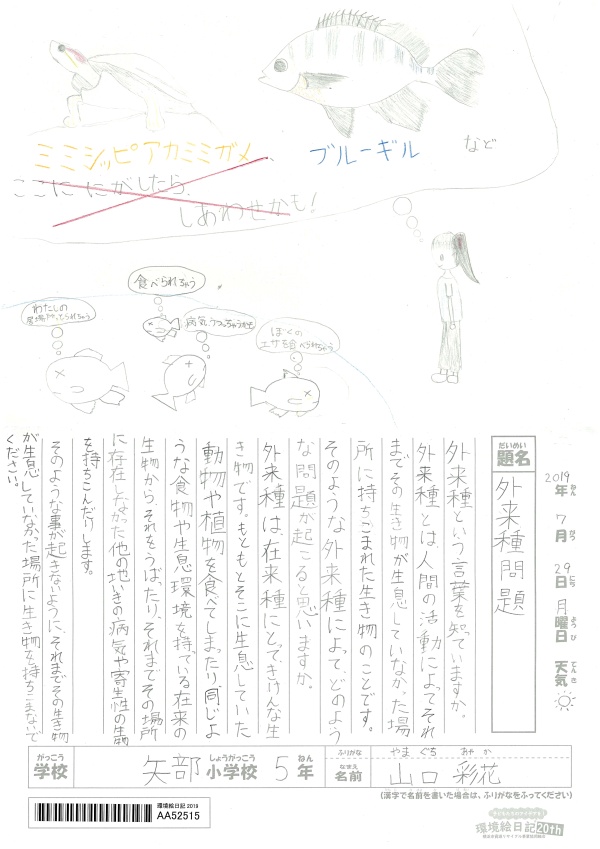 ミミシッピアカミミガメ
ブルーギル
など
ここににがしたら、
しあわせかも！
食べられちゃう
わたしの
居場所とられちゃう
病気うつっちゃうかも
ぼくの
エサを食べられちゃう
2019年 7月 29日 月曜日 天気
ねん がつ にち ようび てんき
だいめい
題名
外来種問題
外来種という言葉を知っていますか。
外来種とは、人間の活動によってそれ
までその生き物が生息していなかった場
所に持ちこまれた生き物のことです。
そのような外来種によって、どのよう
な問題が起こると思いますか。
外来種は、在来種にとってきけんな生
き物です。もともとそこに生息していた
動物や植物を食べてしまったり、同じよ
うな食物や生息環境を持っている在来の
生物からそれをうばったり、それまでその場所
に存在しなかった他の地いきの病気や寄生性の生物
を持ちこんだりします。
そのような事が起きないように、それまでその生き物
が生息していなかった場所に生き物を持ちこまないで
ください。
がっこう しょうがっこう ねん ふりがな やま ぐち あや か
学校 矢部 小学校 5年 なまえ 名前 山口 彩花
(漢字で名前を書いた場合は、ふりがなをふってください)
環境絵日記 2019
AA52515
環境絵日記20th